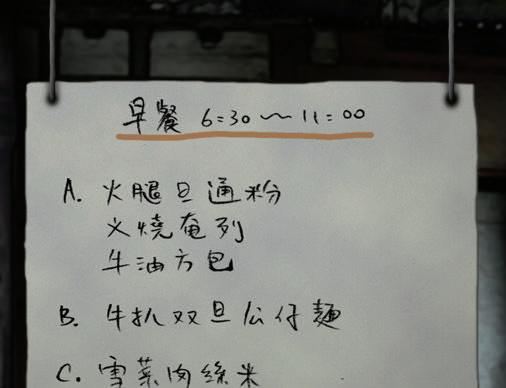 早餐 6:30 ~ 11:00
A. 火腿旦通粉
叉燒奄列
牛油方包
B. 牛扒双旦公仔麵
C. 雪菜肉絲米